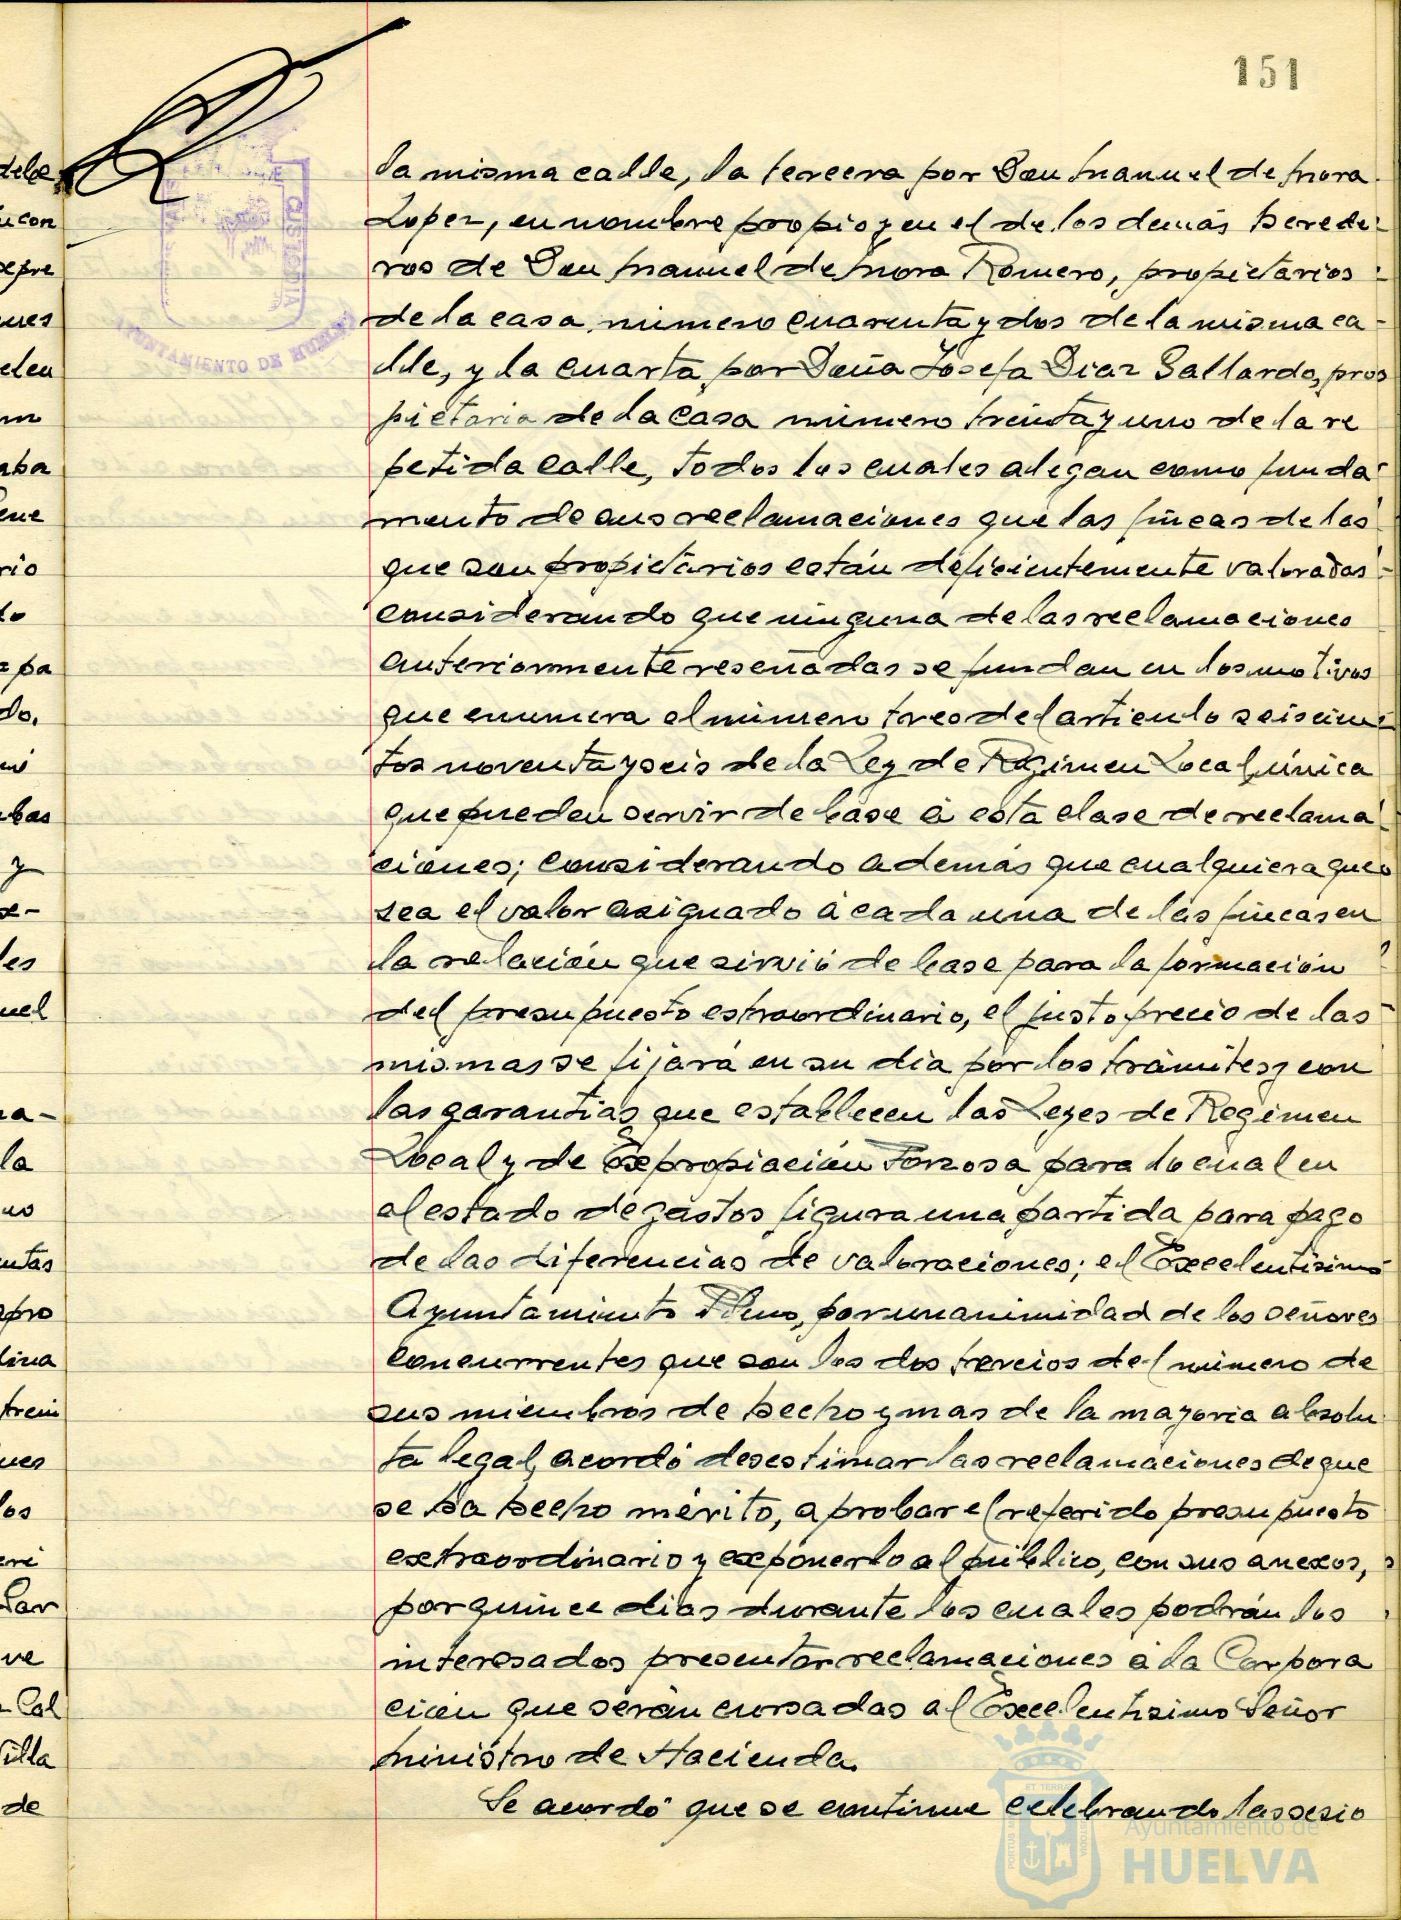 151
la misma calle, la tercera por Don Manuel de Mora
Lopez, en nombre propio y en el de los demás herede-
ros de Don Manuel de Mora Romero, propietarios
de la casa número cuarenta y dos de la misma ca-
lle, y la cuarta por Doña Josefa Diaz Gallardo, pro
pietaria de la casa número treinta y uno de la re
petida calle, todos los cuales alegan como funda-
mento de sus reclamaciones que las fincas de las
que son propietarios están deficientemente valoradas-
considerando que ninguna de las reclamaciones
anteriormente reseñadas se fundan en los motivos
que enumera el número tres del artículo seiscien-
tos noventa y seis de la Ley de Régimen Local, única
que pueden servir de base á esta clase de reclama-
ciones; considerando además que cualquiera que
sea el valor asignado á cada una de las fincas en
la relación que sirvió de base para la formación
del presupuesto extraordinario, el justo precio de las-
mismas se fijará en su día por los trámites y con
las garantias que establecen las Leyes de Regimen
Local y de Expropiación Forzosa para lo cual en
el estado de gastos figura una partida para pago
de las diferencias de valoraciones; el Excelentísimo
Ayuntamiento Pleno, por unanimidad de los señores
concurrentes que son los dos tercios del número de
sus miembros de hecho y mas de la mayoria absolu
ta legal, acordó desestimar las reclamaciones de que
se ha hecho mérito, aprobar el referido presupuesto
extraordinario y exponerlo al público, con sus anexos,
por quince dias durante los cuales podrán los
interesados presentar reclamaciones á la Corpora
ción que serán cursadas al Excelentisimo Señor
Ministro de Hacienda.
Se acordó que se continue celebrando las sesio
CUSTODIA
AYUNTAMIENTO DE HUELVA
Ayuntamiento de
HUELVA